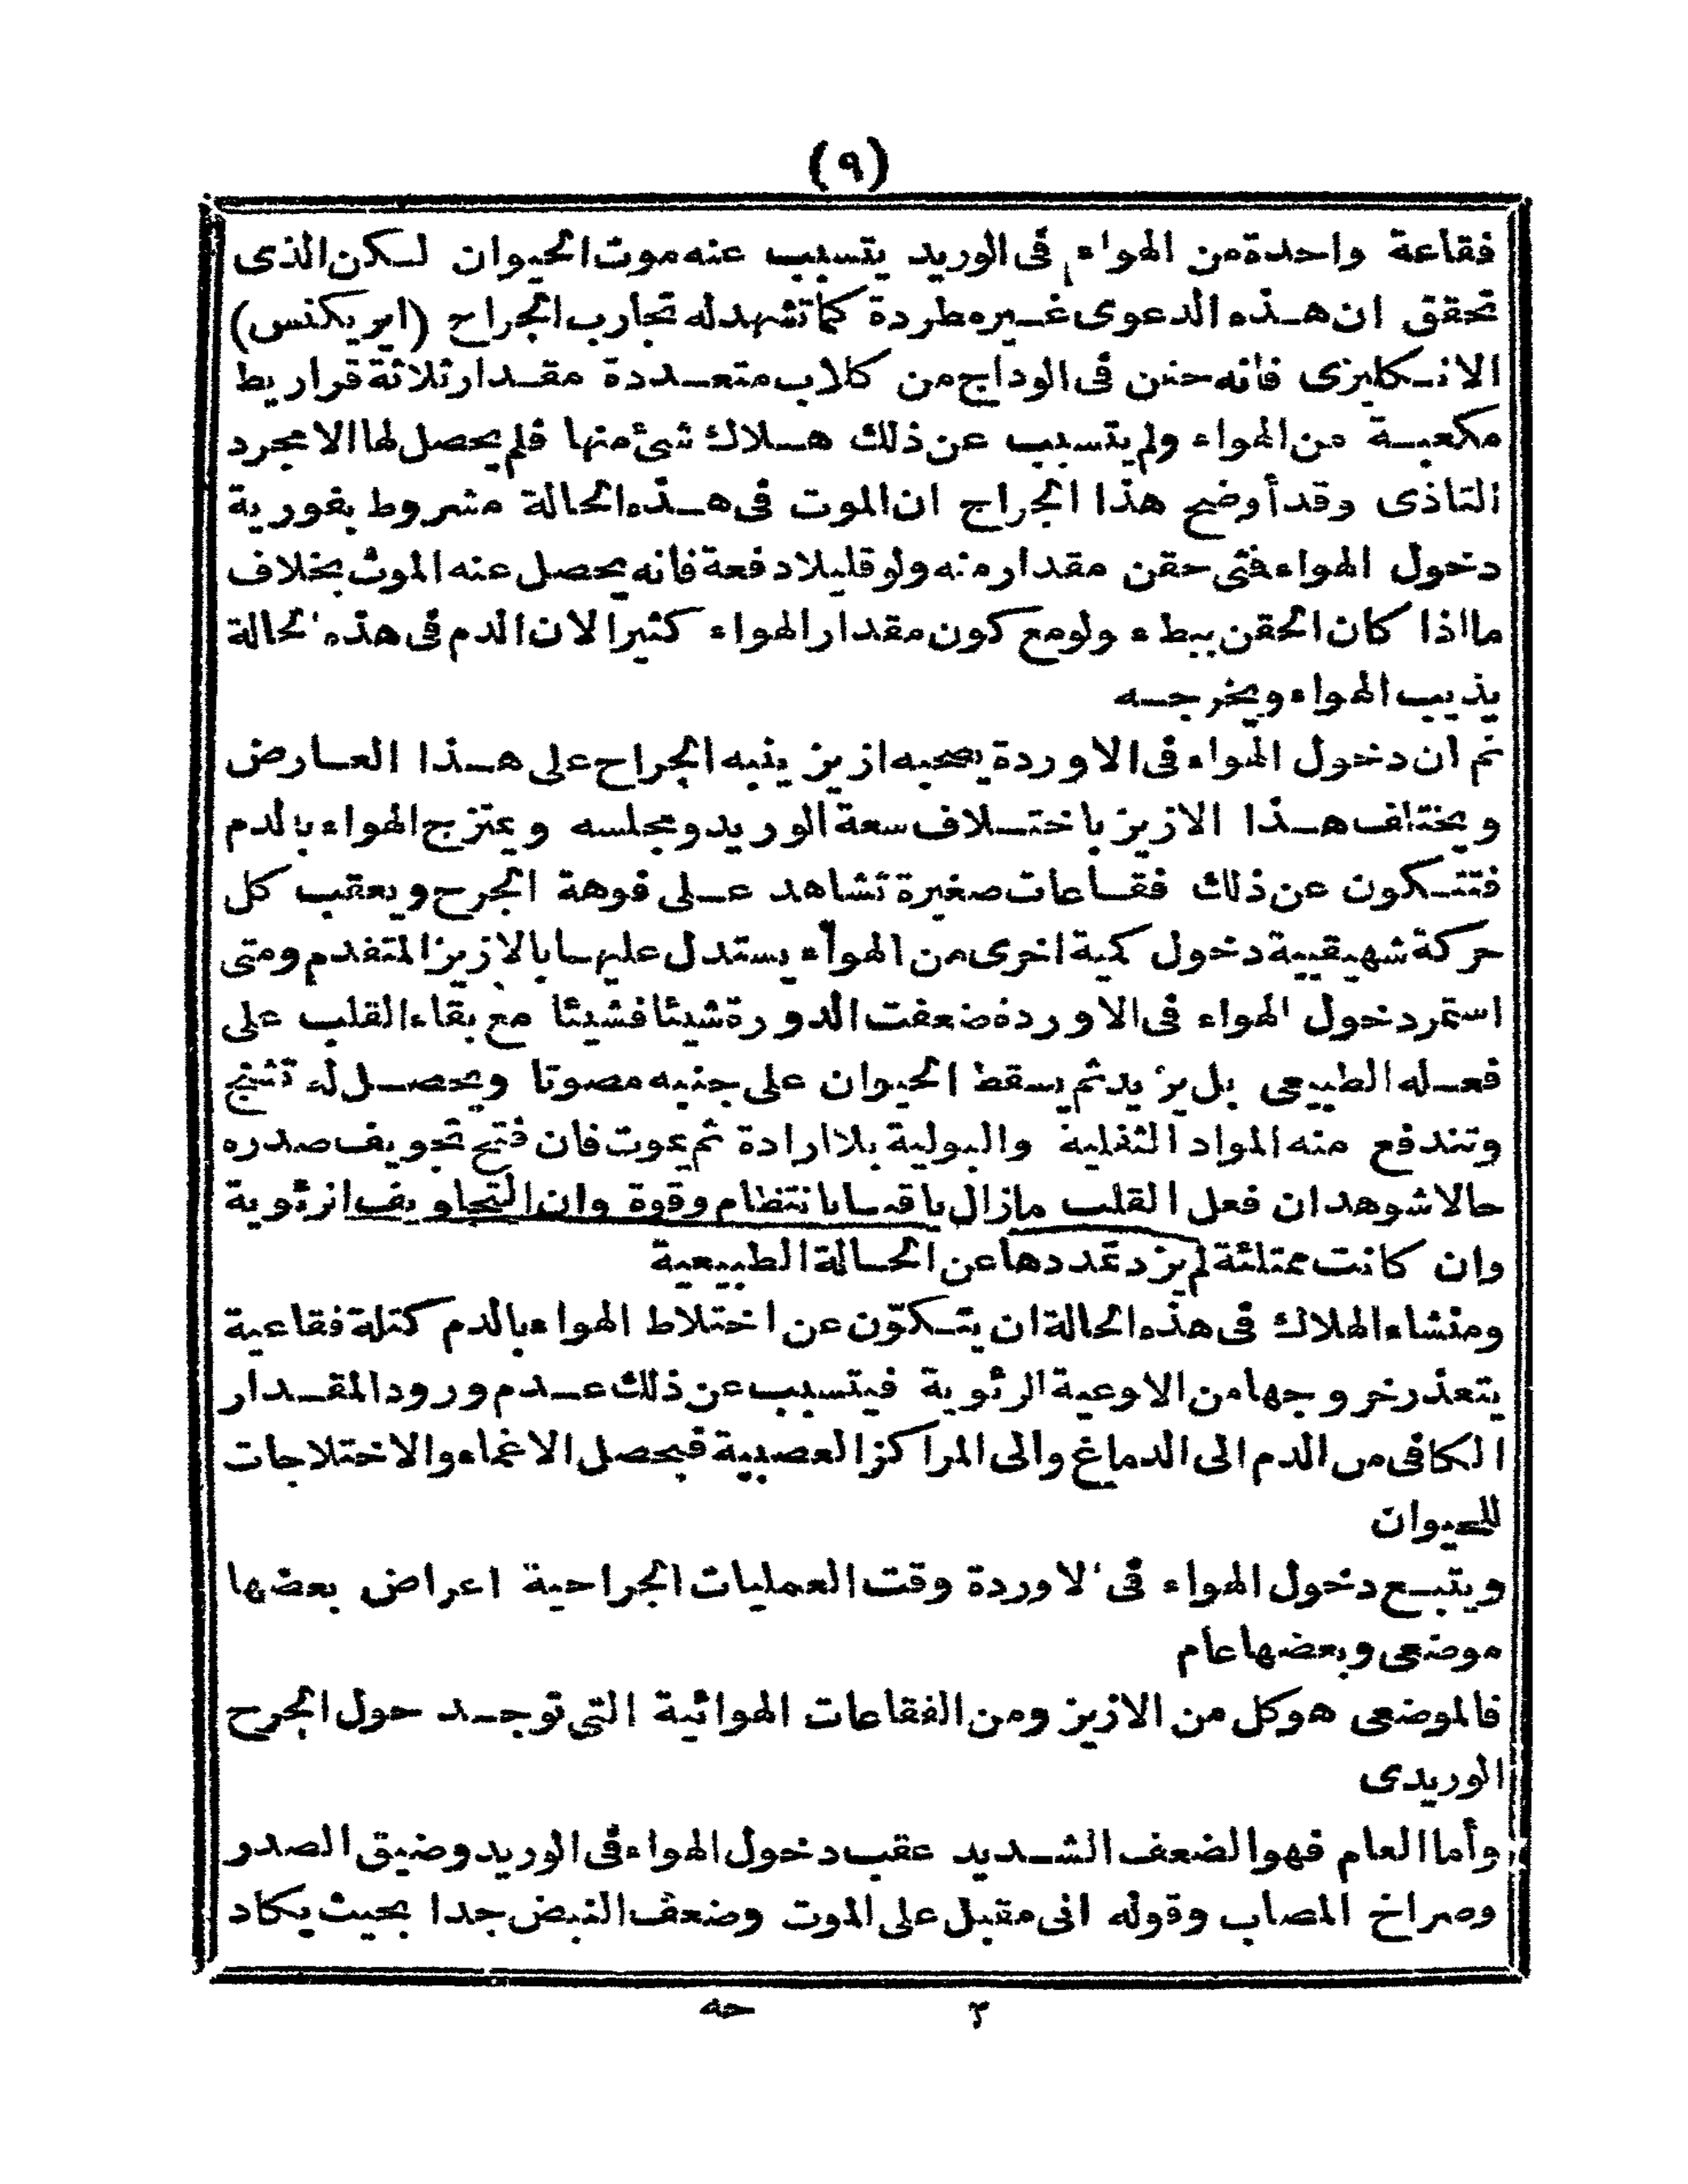 (٩)
فقاعة واحدة من الهواء فى الوريد يتسبب عنه موت الحيوان لكن الذى
تحقق ان هذه الدعوى غير مطردة كما تشهد له تجارب الجراح (ايريكنس)
الانكليزى فانه حقن فى الوداج من كلاب متعددة مقدار ثلاثة قراريط
مكعبة من الهواء ولم يتسبب عن ذلك هلاك شئ منها فلم يحصل لها الا مجرد
التاذى وقد أوضح هذا الجراح ان الموت فى هذه الحالة مشروط بفورية
دخول الهواء فتى حقن مقدار منه ولو قليلا دفعة فانه يحصل عنه الموت بخلاف
ما اذا كان الحقن ببطء ولو مع كون مقدار الهواء كثيرا لان الدم فى هذه الحالة
يذيب الهواء ويخرجه
ثم ان دخول الهواء فى الاوردة يصحبه ازيز ينبه الجراح على هذا العارض
ويختلف هذا الازيز باختلاف سعة الوريد ومجلسه ويمتزج الهواء بالدم
فتتكون عن ذلك فقاعات صغيرة تشاهد على فوهة الجرح ويعقب كل
حركة شهيقية دخول كمية اخرى من الهواء يستدل عليها بالازيز المتقدم ومتى
استمر دخول الهواء فى الاوردة ضعفت الدورة شيئا فشيئا مع بقاء القلب على
فعله الطبيعى بل يزيد ثم يسقط الحيوان على جنبه مصوتا ويحصل له تشنج
وتندفع منه المواد الثفلية والبولية بلا ارادة ثم يموت فان فتح تجويف صدره
حالا شوهد ان فعل القلب مازال باقيا بانتظام وقوة وان التجاويف الرئوية
وان كانت ممتلئة لم يزد تمددها عن الحالة الطبيعية
ومنشاء الهلاك فى هذه الحالة ان يتكوّن عن اختلاط الهواء بالدم كتلة فقاعية
يتعذر خروجها من الاوعية الرئوية فيتسبب عن ذلك عدم ورود المقدار
الكافى من الدم الى الدماغ والى المراكز العصبية فيحصل الاغماء والاختلاجات
للحيوان
ويتبع دخول الهواء فى الاوردة وقت العمليات الجراحية اعراض بعضها
موضعى وبعضها عام
فالموضعى هو كل من الازيز ومن الفقاعات الهوائية التى توجد حول الجرح
الوريدى
وأما العام فهو الضعف الشديد عقب دخول الهواء فى الوريد وضيق الصدر
وصراخ المصاب وقوله انى مقبل على الموت وضعف النبض جدا بحيث يكاد
٢ حه